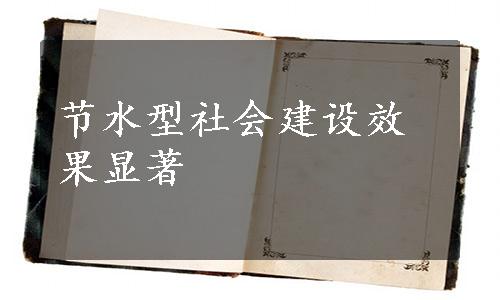 节水型社会建设效
果显著